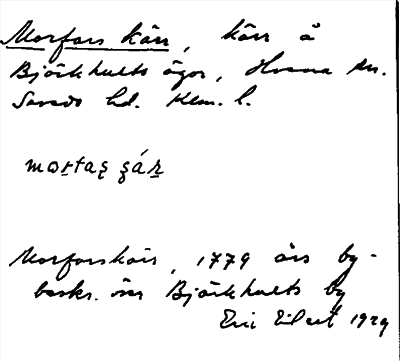 Morfars kärr, kärr å
Björkhults ägor, Hvena sn.
Sevede hd. Klm. l.
Morfarskärr, 1779 års by-
beskr. över Björkhults by
Eric Eilert 1929